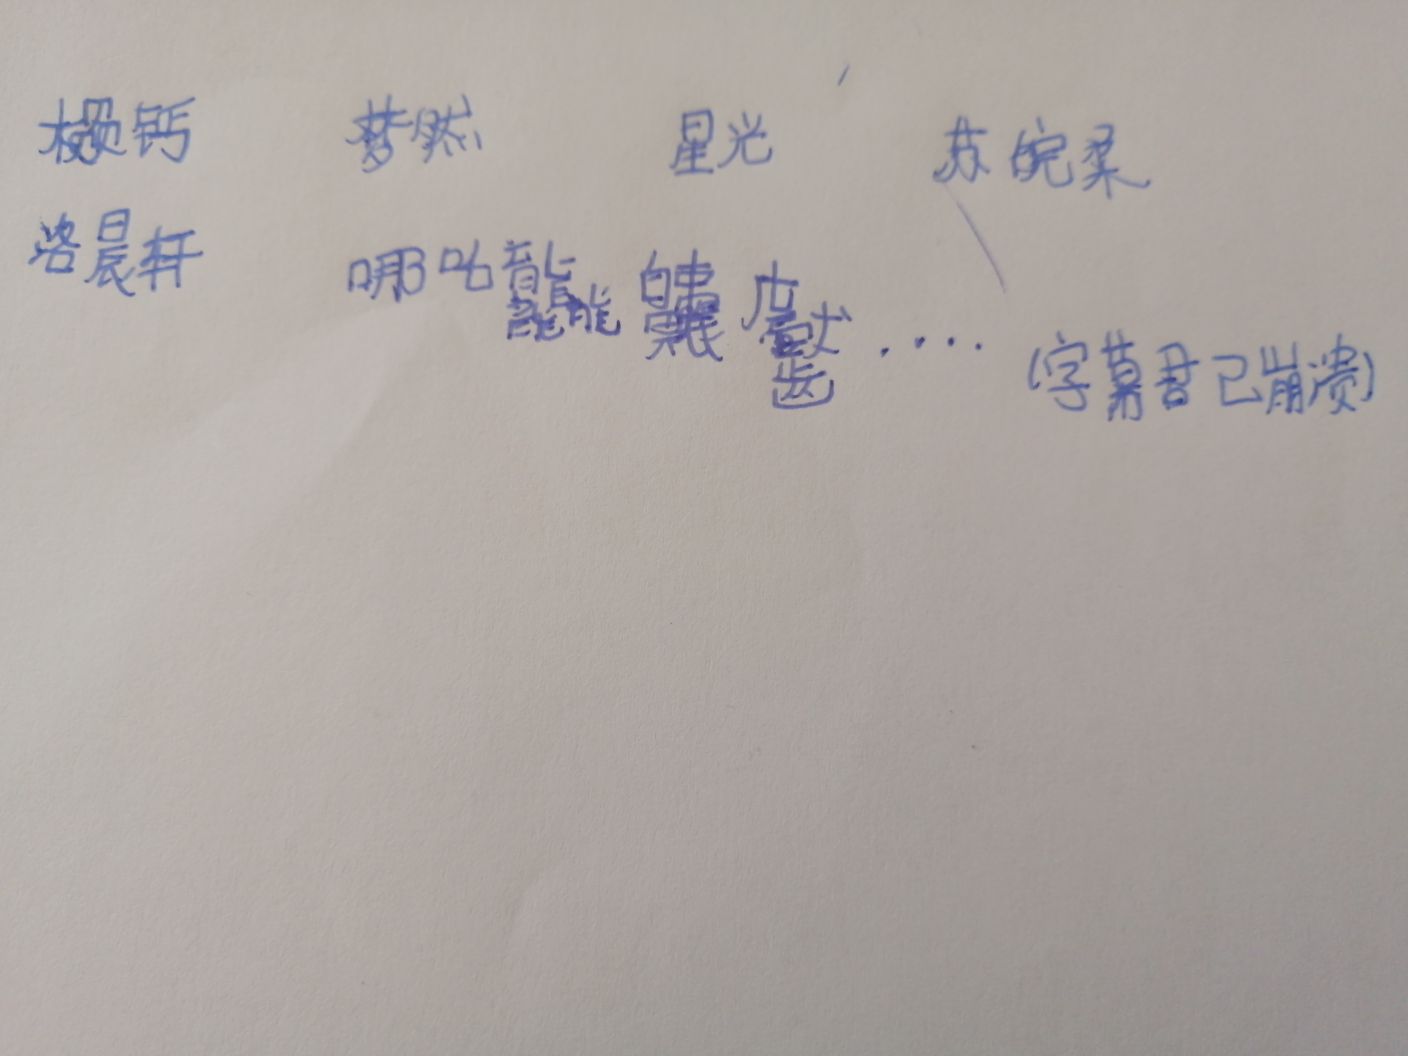 钙 梦然 星光 苏皖柔
洛晨轩 哪咕 .... (字幕君已崩溃)